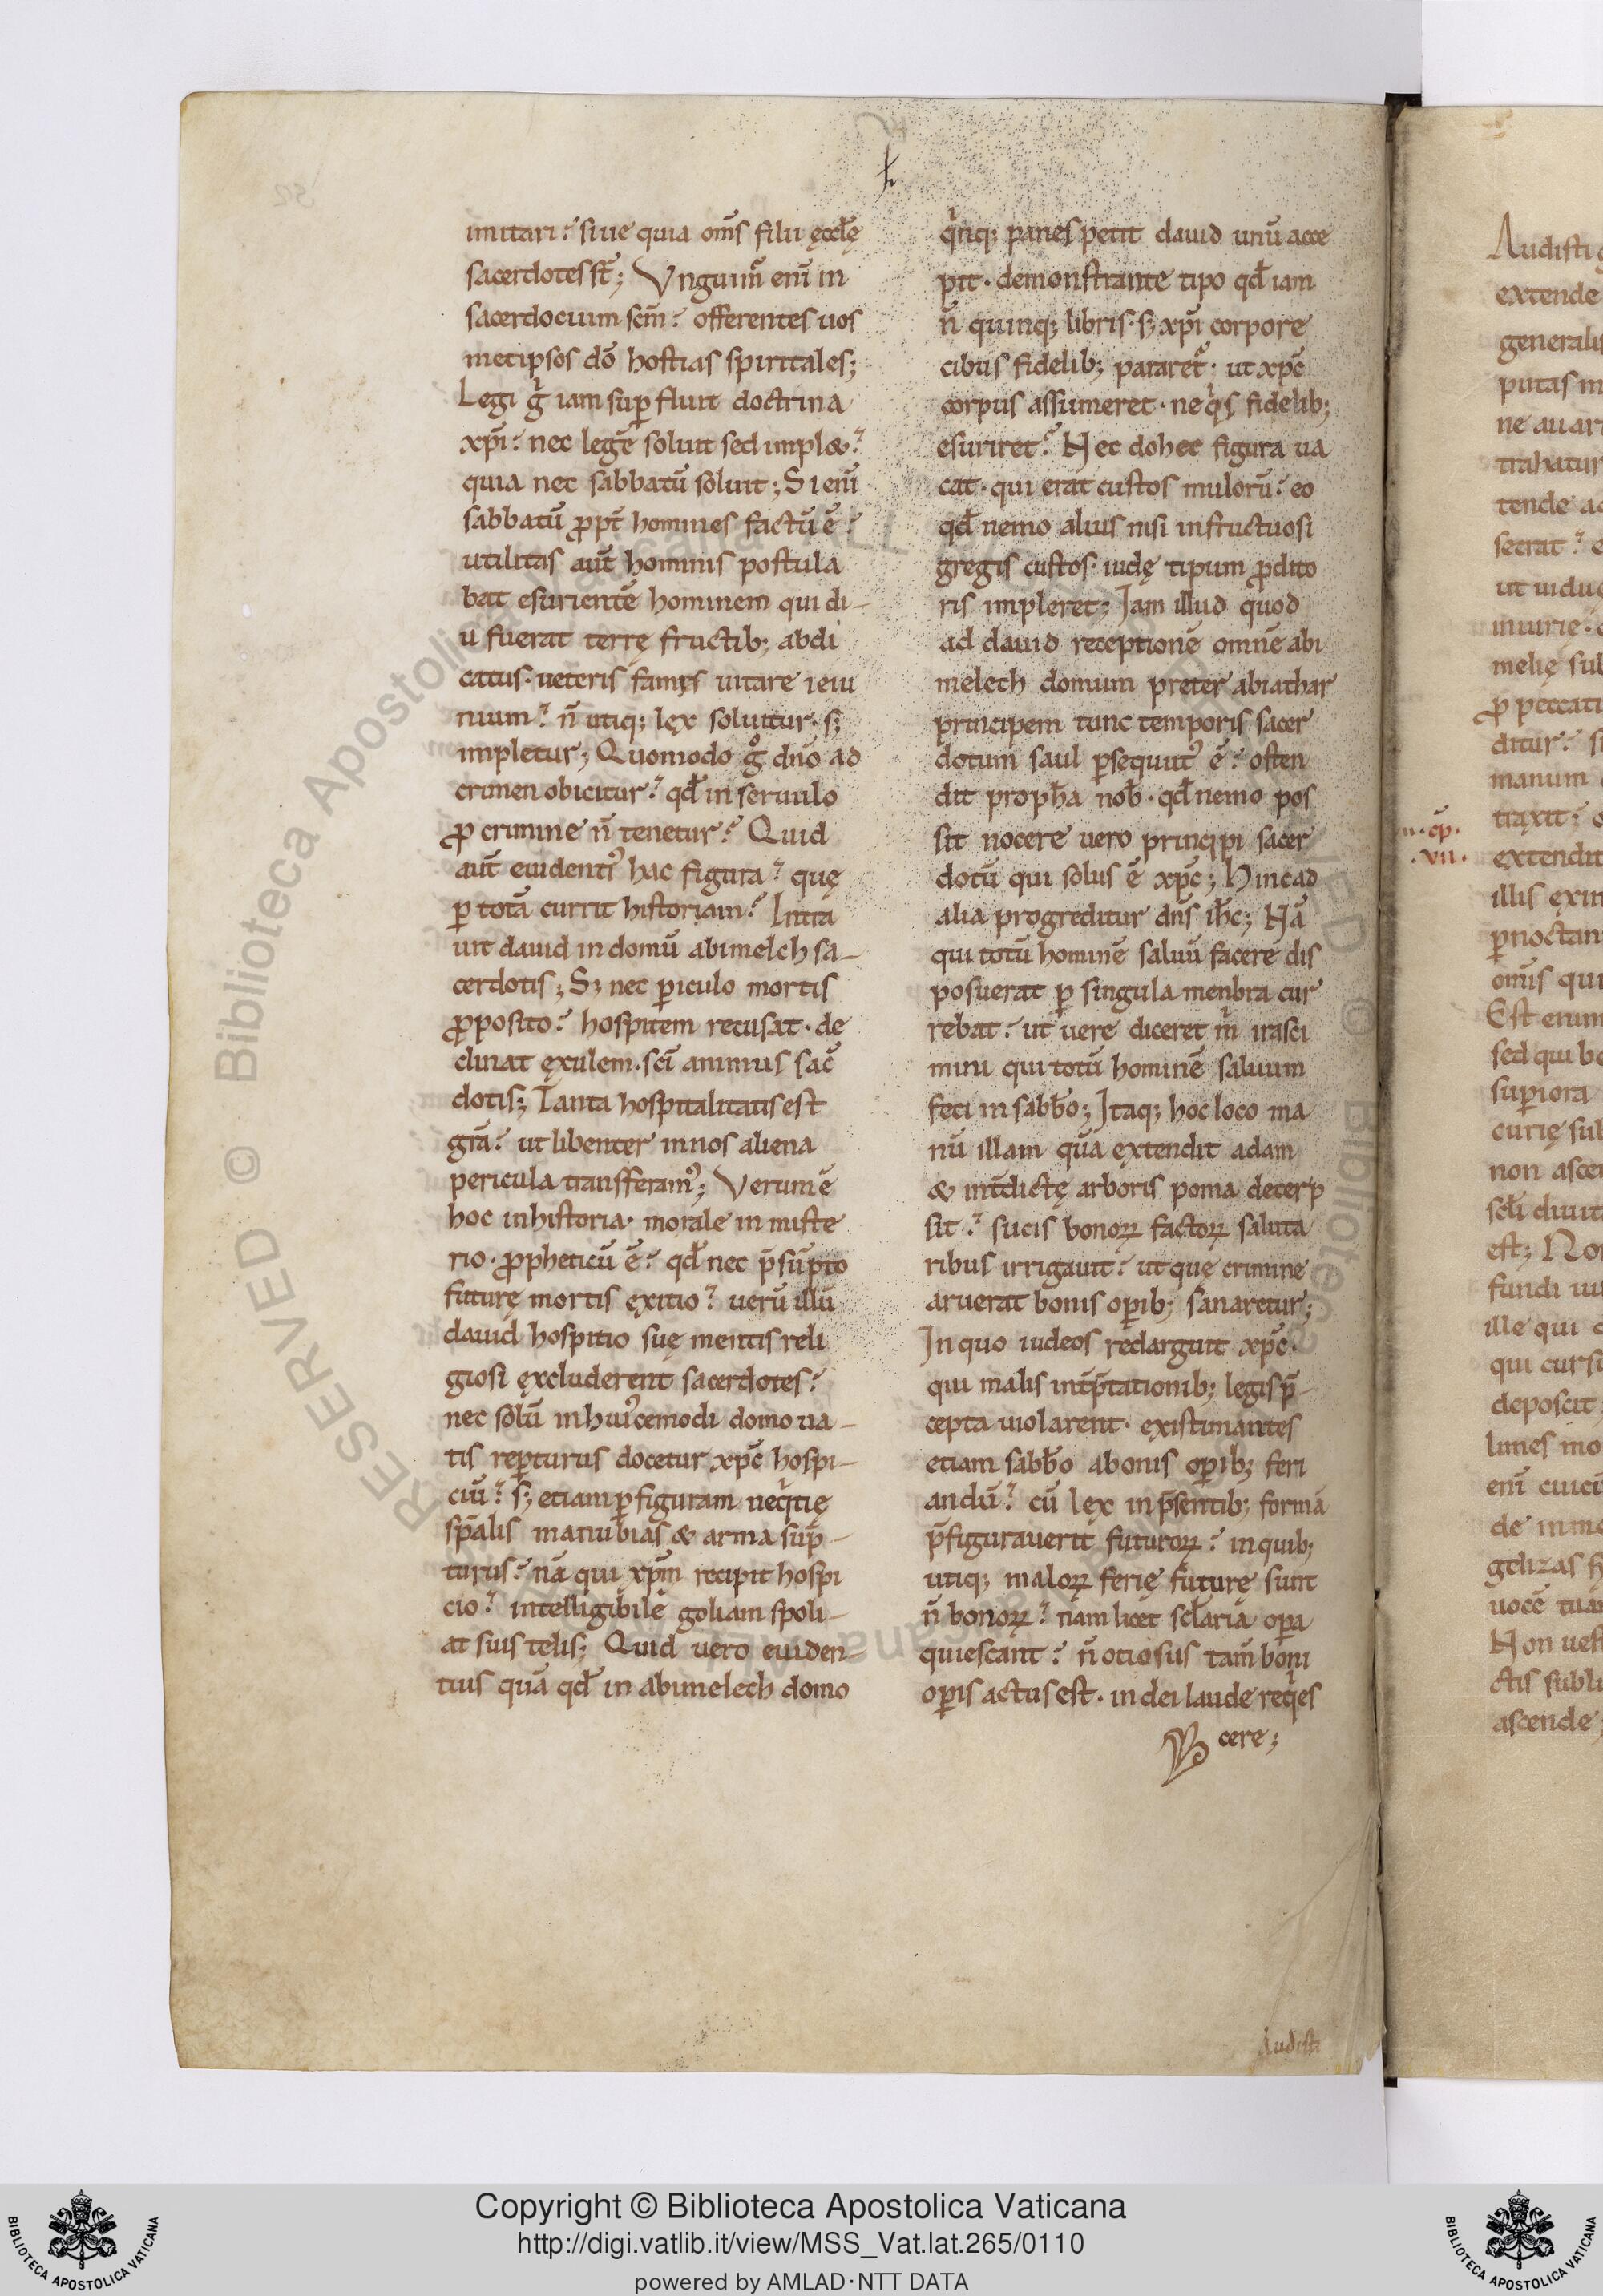 imitari? siue quia om̅s filii ęccl̅ę
sacerdotes st̅; Vnguimr̅ eni̅ in
sacerdocium scm̅? offerentes uos
metipsos do̅ hostias spiritales;
Legi gͥ iam sup̲ fluit doctrina
xp̅i? nec lege̅ soluit sed impl&?
quia nec sabbatu̅ soluit; Si eni̅
sabbatu̅ ꝓpt̅ homines factu̅ e̅?
utilitas aut̅ hominis postula
bat esuriente̅ hominem qui di-
u fuerat terrę fructib; abdi
catus· ueteris famis uitare ieiu
nium? n̅ utiq; lęx soluitur· s;
impletur; Quomodo gͦ dn̅o ad
crimen obicitur? qd̅ in seruulo
ꝓ crimine n̅ tenetur? Quid
aut̅ euidentiͥ hac figura? quę
ꝑ tota̅ currit historiam? Intra
uit dauid in domu̅ abimelch sa-
cerdotis; S; nec ꝑiculo mortis
ꝓposito? hospitem recusat· de
clinat ęxulem· sci̅ animus sac̅
dotis; Tanta hospitalitatis est
gra̅? ut libenter in nos aliena
pericula transferamꝰ; Verum e̅
hoc in historia· morale in miste
rio· ꝓpheticu̅ e̅? qd̅ nec p̅su̅pto
futurę mortis ęxitio? ueru̅ illu̅
dauid hospitio suę mentis reli
giosi ęxcluderent sacerdotes?
nec solu̅ in huiꝰcemodi domo ua-
tis reꝑturus docetur xpc̅ hospi-
ciu̅? s; etiam ꝑ figuram neqͥtię
sp̅alis manubias & arma su̅p-
turus? na̅ qui xpm̅ recipit hospi
cio? intelligibile̅ goliam spoli-
at suis telis; Quid uero euiden-
tius qua̅ qd̅ in abimelech domo
qͥnq; panes petit dauid unu̅ acce
pit· demonstrante tipo qd̅ iam
n̅ quinq; libris· s; xp̅i corpore
cibus fidelib; pararetᷣ· ut xpc̅
corpus assumeret· ne qͥs fidelib;
esuriret? Nec dohec figura ua
cat· qui erat custos muloru̅? eo
qd̅ nemo alius nisi infructuosi
gregis custos· iudę tipum ꝓdito
ris impleret; Jam illud quod
ad dauid receptione̅ omne̅ abi
melech domum preter abiathar
principem tunc temporis sacer
dotum saul ꝑsequutꝰ e̅? osten
dit proph̅a nob̅· qd̅ nemo pos
sit nocere uero principi sacer
dotu̅ qui solus e̅ xpc̅; Hinc ad
alia progreditur dn̅s ih̅c; Na̅
qui totu̅ homine̅ saluu̅ facere dis
posuerat ꝑ singula menbra cur
rebat? ut uere diceret mͥ irasci
mini qui totu̅ homine̅ saluum
feci in sabb̅o; Jtaq; hoc loco ma
nu̅ illam qua̅ extendit adam
& int̅dictę arboris poma decerp
sit? sucis bonoꝝ factoꝝ saluta
ribus irrigauit? ut quę crimine
aruerat bonis oꝑib; sanaretur;
In quo iudeos redarguit xpc̅·
qui malis int̅p̅tationib; legis p̅-
cepta uiolarent· existimantes
etiam sabb̅o a bonis oꝑib; feri
andu̅? cu̅ lex in p̅sentib; forma̅
p̅figurauerit futuroꝝ? in quib;
utiq; maloꝝ ferię futurę sunt
n̅ bonoꝝ? nam licet scl̅aria oꝑa
quiescant? n̅ otiosus tam̅ boni
oꝑis actus est· in dei laude reqͥes
cere;
Audisti
Audisti
extende
generalis
putas
ne auar
trahatur
ut uiduę
iniurie
melię
ꝓ peccati
ditur?
manum
traxit?
n· ep̅·
·vii·
extendit
illis
ꝑnoctan
om̅s qui
Est enim
sed qui
suꝑiora
curię
non ascen
scl̅i
est; Non
fundi
ille qui
qui cursu
deposcit
limes
eni̅ cuicu̅
de
uoce̅ tuam
Non
ctis
ascende;
Copyright © Biblioteca Apostolica Vaticana
http://digi.vatlib.it/view/MSS_Vat.lat.265/0110
powered by AMLAD·NTT DATA
BIBLIOTECA APOSTOLICA VATICANA
BIBLIOTECA APOSTOLICA VATICANA